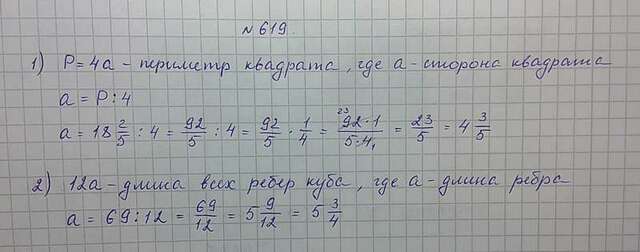 № 619.
1) P = 4a - периметр квадрата, где a - сторона квадрата
a = P : 4
a = 18 2/5 : 4 = 92/5 : 4 = 92/5 · 1/4 = 92·1/5·4 23 1 = 23/5 = 4 3/5
2) 12a - длина всех ребер куба, где a - длина ребра
a = 69 : 12 = 69/12 = 5 9/12 = 5 3/4